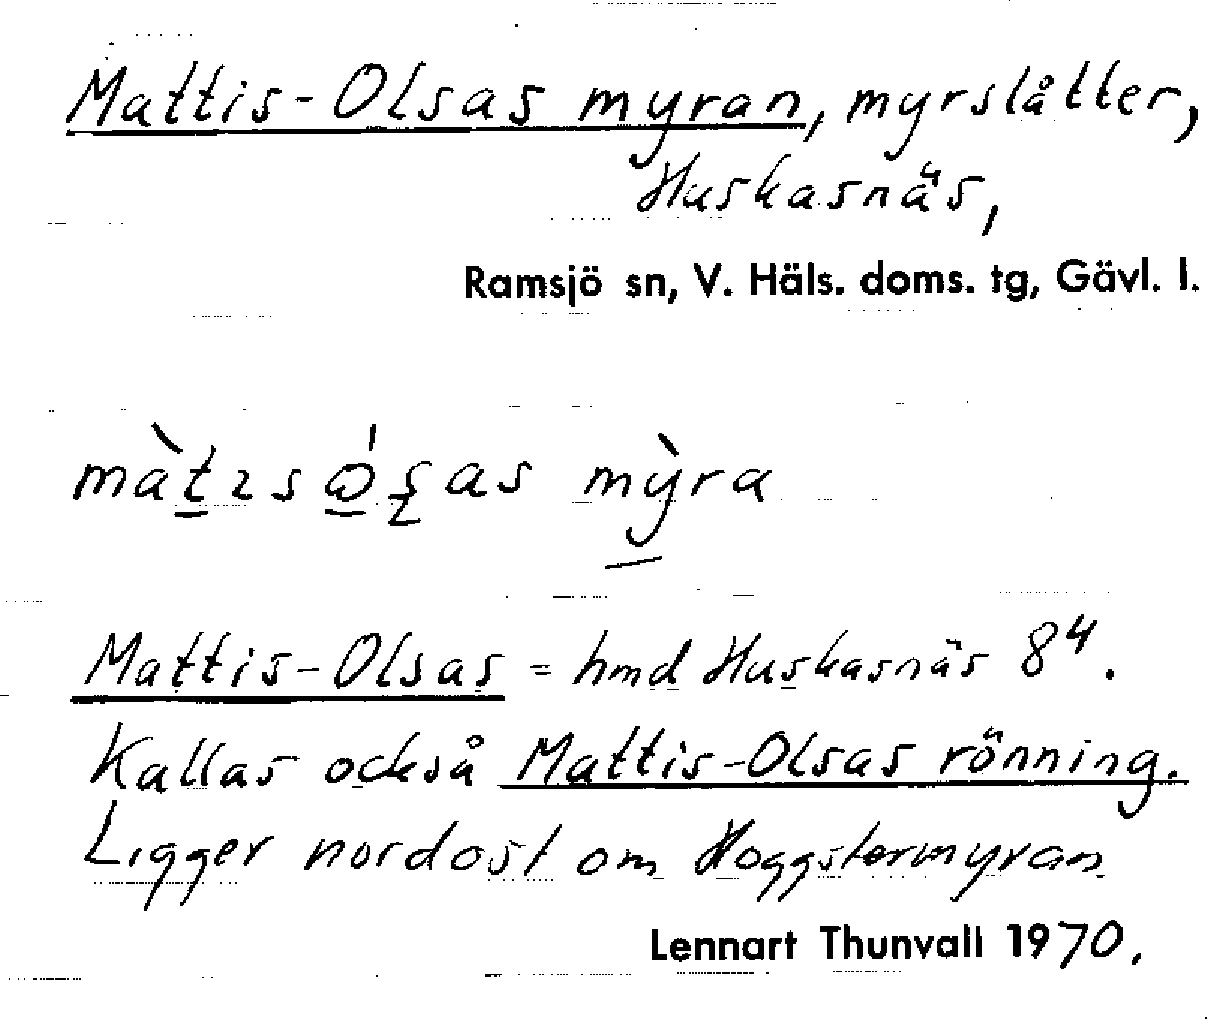 Mattis-Olsas myran, myrslåtter,
Huskasnäs,
Ramsjö sn, V. Häls. doms. tg, Gävl. l.
Mattis-Olsas = hmd Huskasnäs 8⁴.
Kallas också Mattis-Olsas rönning.
Ligger nordost om Hoggstormyran
Lennart Thunvall 1970.